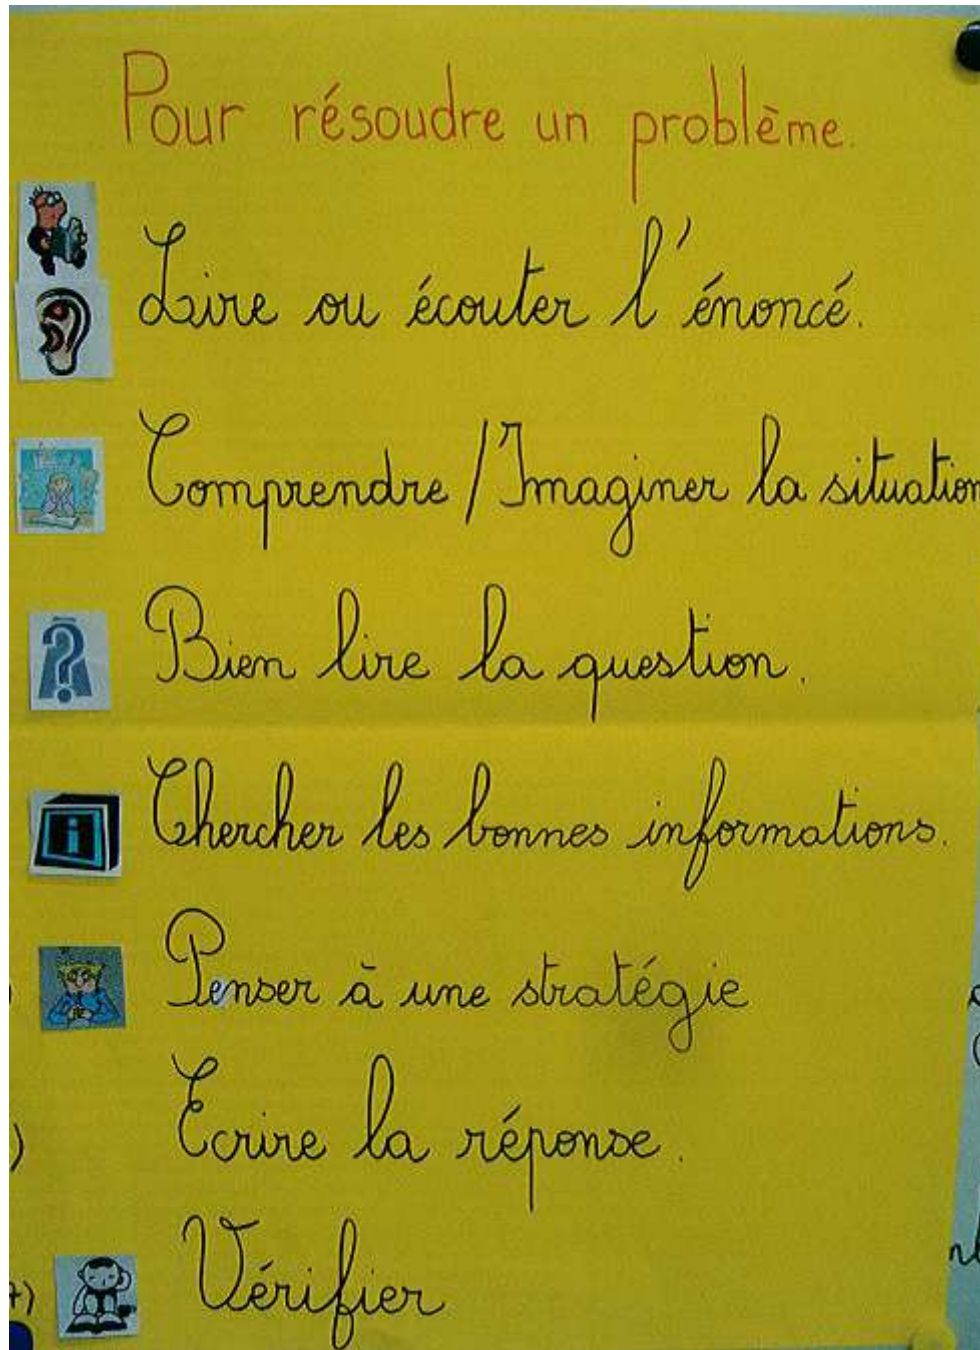 Pour résoudre un problème.
Lire ou écouter l'énoncé.
Comprendre / Imaginer la situation
? Bien lire la question.
i Chercher les bonnes informations.
Penser à une stratégie
Ecrire la réponse.
)
7) Vérifier